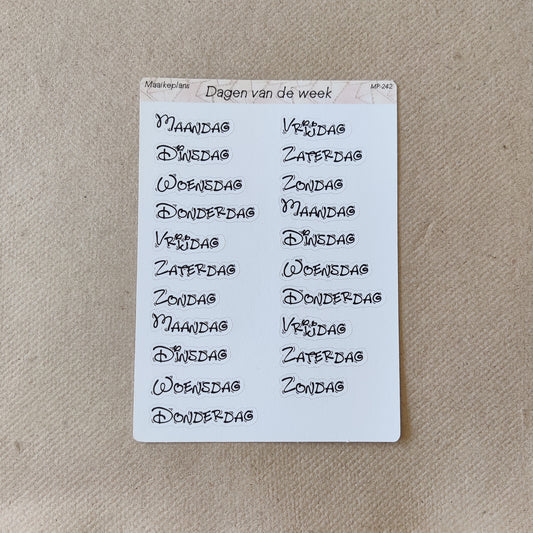 Maaikeplans
Dagen van de week
MP-242
MAANDAG
DINSDAG
WOENSDAG
DONDERDAG
VRIJDAG
ZATERDAG
ZONDAG
MAANDAG
DINSDAG
WOENSDAG
DONDERDAG
VRIJDAG
ZATERDAG
ZONDAG
MAANDAG
DINSDAG
WOENSDAG
DONDERDAG
VRIJDAG
ZATERDAG
ZONDAG